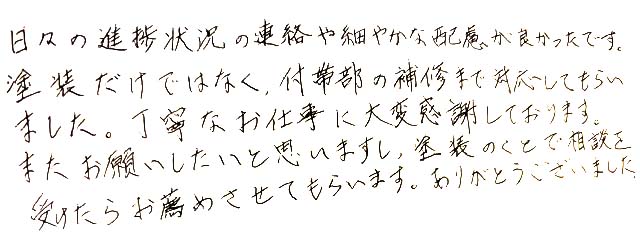 日々の進捗状況の連絡や細やかな配慮が良かったです。
塗装だけではなく、付帯部の補修まで対応してもらい
ました。丁寧なお仕事に大変感謝しております。
またお願いしたいと思いますし、塗装のことで相談を
受けたらお薦めさせてもらいます。ありがとうございました